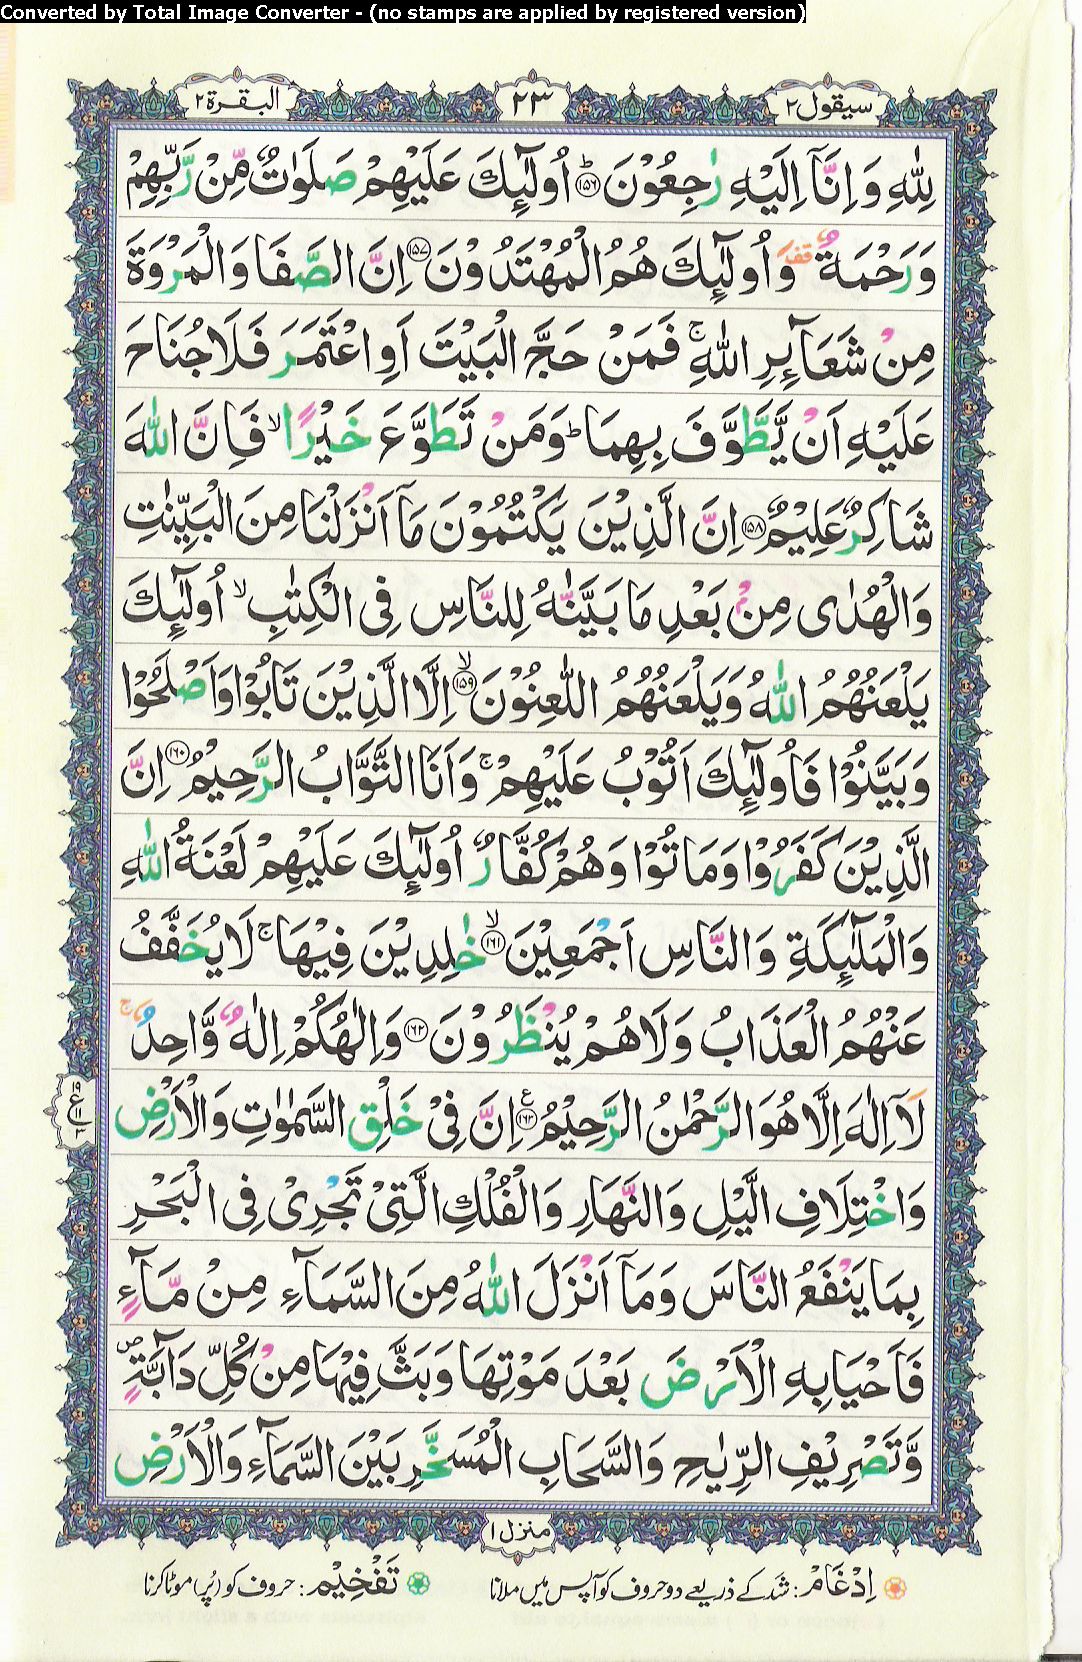 Converted by Total Image Converter - (no stamps are applied by registered version)
سيقول ٢
٢٣
البقرة ٢
لِلّٰهِ وَ اِنَّاۤ اِلَيْهِ رٰجِعُوْنَؕ۝۱۵۶ اُولٰٓئِكَ عَلَيْهِمْ صَلَوٰتٌ مِّنْ رَّبِّهِمْ
وَ رَحْمَةٌ ۫ وَ اُولٰٓئِكَ هُمُ الْمُهْتَدُوْنَ۝۱۵۷ اِنَّ الصَّفَا وَ الْمَرْوَةَ
مِنْ شَعَآئِرِ اللّٰهِۚ فَمَنْ حَجَّ الْبَيْتَ اَوِ اعْتَمَرَ فَلَا جُنَاحَ
عَلَيْهِ اَنْ يَّطَّوَّفَ بِهِمَاؕ وَ مَنْ تَطَوَّعَ خَيْرًاۙ فَاِنَّ اللّٰهَ
شَاكِرٌ عَلِيْمٌ۝۱۵۸ اِنَّ الَّذِيْنَ يَكْتُمُوْنَ مَاۤ اَنْزَلْنَا مِنَ الْبَيِّنٰتِ
وَ الْهُدٰى مِنْۢ بَعْدِ مَا بَيَّنّٰهُ لِلنَّاسِ فِى الْكِتٰبِۙ اُولٰٓئِكَ
يَلْعَنُهُمُ اللّٰهُ وَ يَلْعَنُهُمُ اللّٰعِنُوْنَۙ۝۱۵۹ اِلَّا الَّذِيْنَ تَابُوْا وَ اَصْلَحُوْا
وَ بَيَّنُوْا فَاُولٰٓئِكَ اَتُوْبُ عَلَيْهِمْۚ وَ اَنَا التَّوَّابُ الرَّحِيْمُ۝۱۶۰ اِنَّ
الَّذِيْنَ كَفَرُوْا وَ مَاتُوْا وَ هُمْ كُفَّارٌ اُولٰٓئِكَ عَلَيْهِمْ لَعْنَةُ اللّٰهِ
وَ الْمَلٰٓئِكَةِ وَ النَّاسِ اَجْمَعِيْنَۙ۝۱۶۱ خٰلِدِيْنَ فِيْهَاۚ لَا يُخَفَّفُ
عَنْهُمُ الْعَذَابُ وَ لَا هُمْ يُنْظَرُوْنَ۝۱۶۲ وَ اِلٰهُكُمْ اِلٰهٌ وَّاحِدٌۚ
لَاۤ اِلٰهَ اِلَّا هُوَ الرَّحْمٰنُ الرَّحِيْمُ۝۱۶۳ اِنَّ فِىْ خَلْقِ السَّمٰوٰتِ وَ الْاَرْضِ
وَ اخْتِلَافِ الَّيْلِ وَ النَّهَارِ وَ الْفُلْكِ الَّتِىْ تَجْرِىْ فِى الْبَحْرِ
بِمَا يَنْفَعُ النَّاسَ وَ مَاۤ اَنْزَلَ اللّٰهُ مِنَ السَّمَآءِ مِنْ مَّآءٍ
فَاَحْيَا بِهِ الْاَرْضَ بَعْدَ مَوْتِهَا وَ بَثَّ فِيْهَا مِنْ كُلِّ دَآبَّةٍ۪
وَّ تَصْرِيْفِ الرِّيٰحِ وَ السَّحَابِ الْمُسَخَّرِ بَيْنَ السَّمَآءِ وَ الْاَرْضِ
۱۹
ع
۱۱
۳
منزل ۱
اِدْغَامْ: شد کے ذریعے دو حروف کو آپس میں ملانا
تَفْخِيْم: حروف کو (پُر) موٹا کرنا